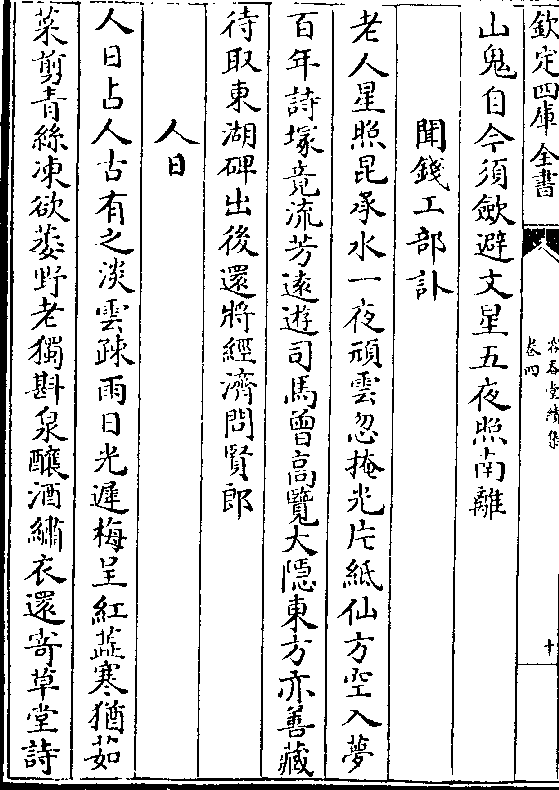 欽定四庫全書
容春堂續集
卷四
十
山鬼自今須歛避文星五夜照南離
聞錢工部訃
老人星照昆承水一夜頑雲忽掩光片紙仙方空入夢
百年詩塚竟流芳遠遊司馬曾高覽大隱東方亦善藏
待取東湖碑出後還將經濟問賢郎
人日
人日占人古有之淡雲疎雨日光遲梅呈紅蕋寒猶茹
菜剪青絲凍欲萎野老獨斟泉釀酒繡衣還寄草堂詩